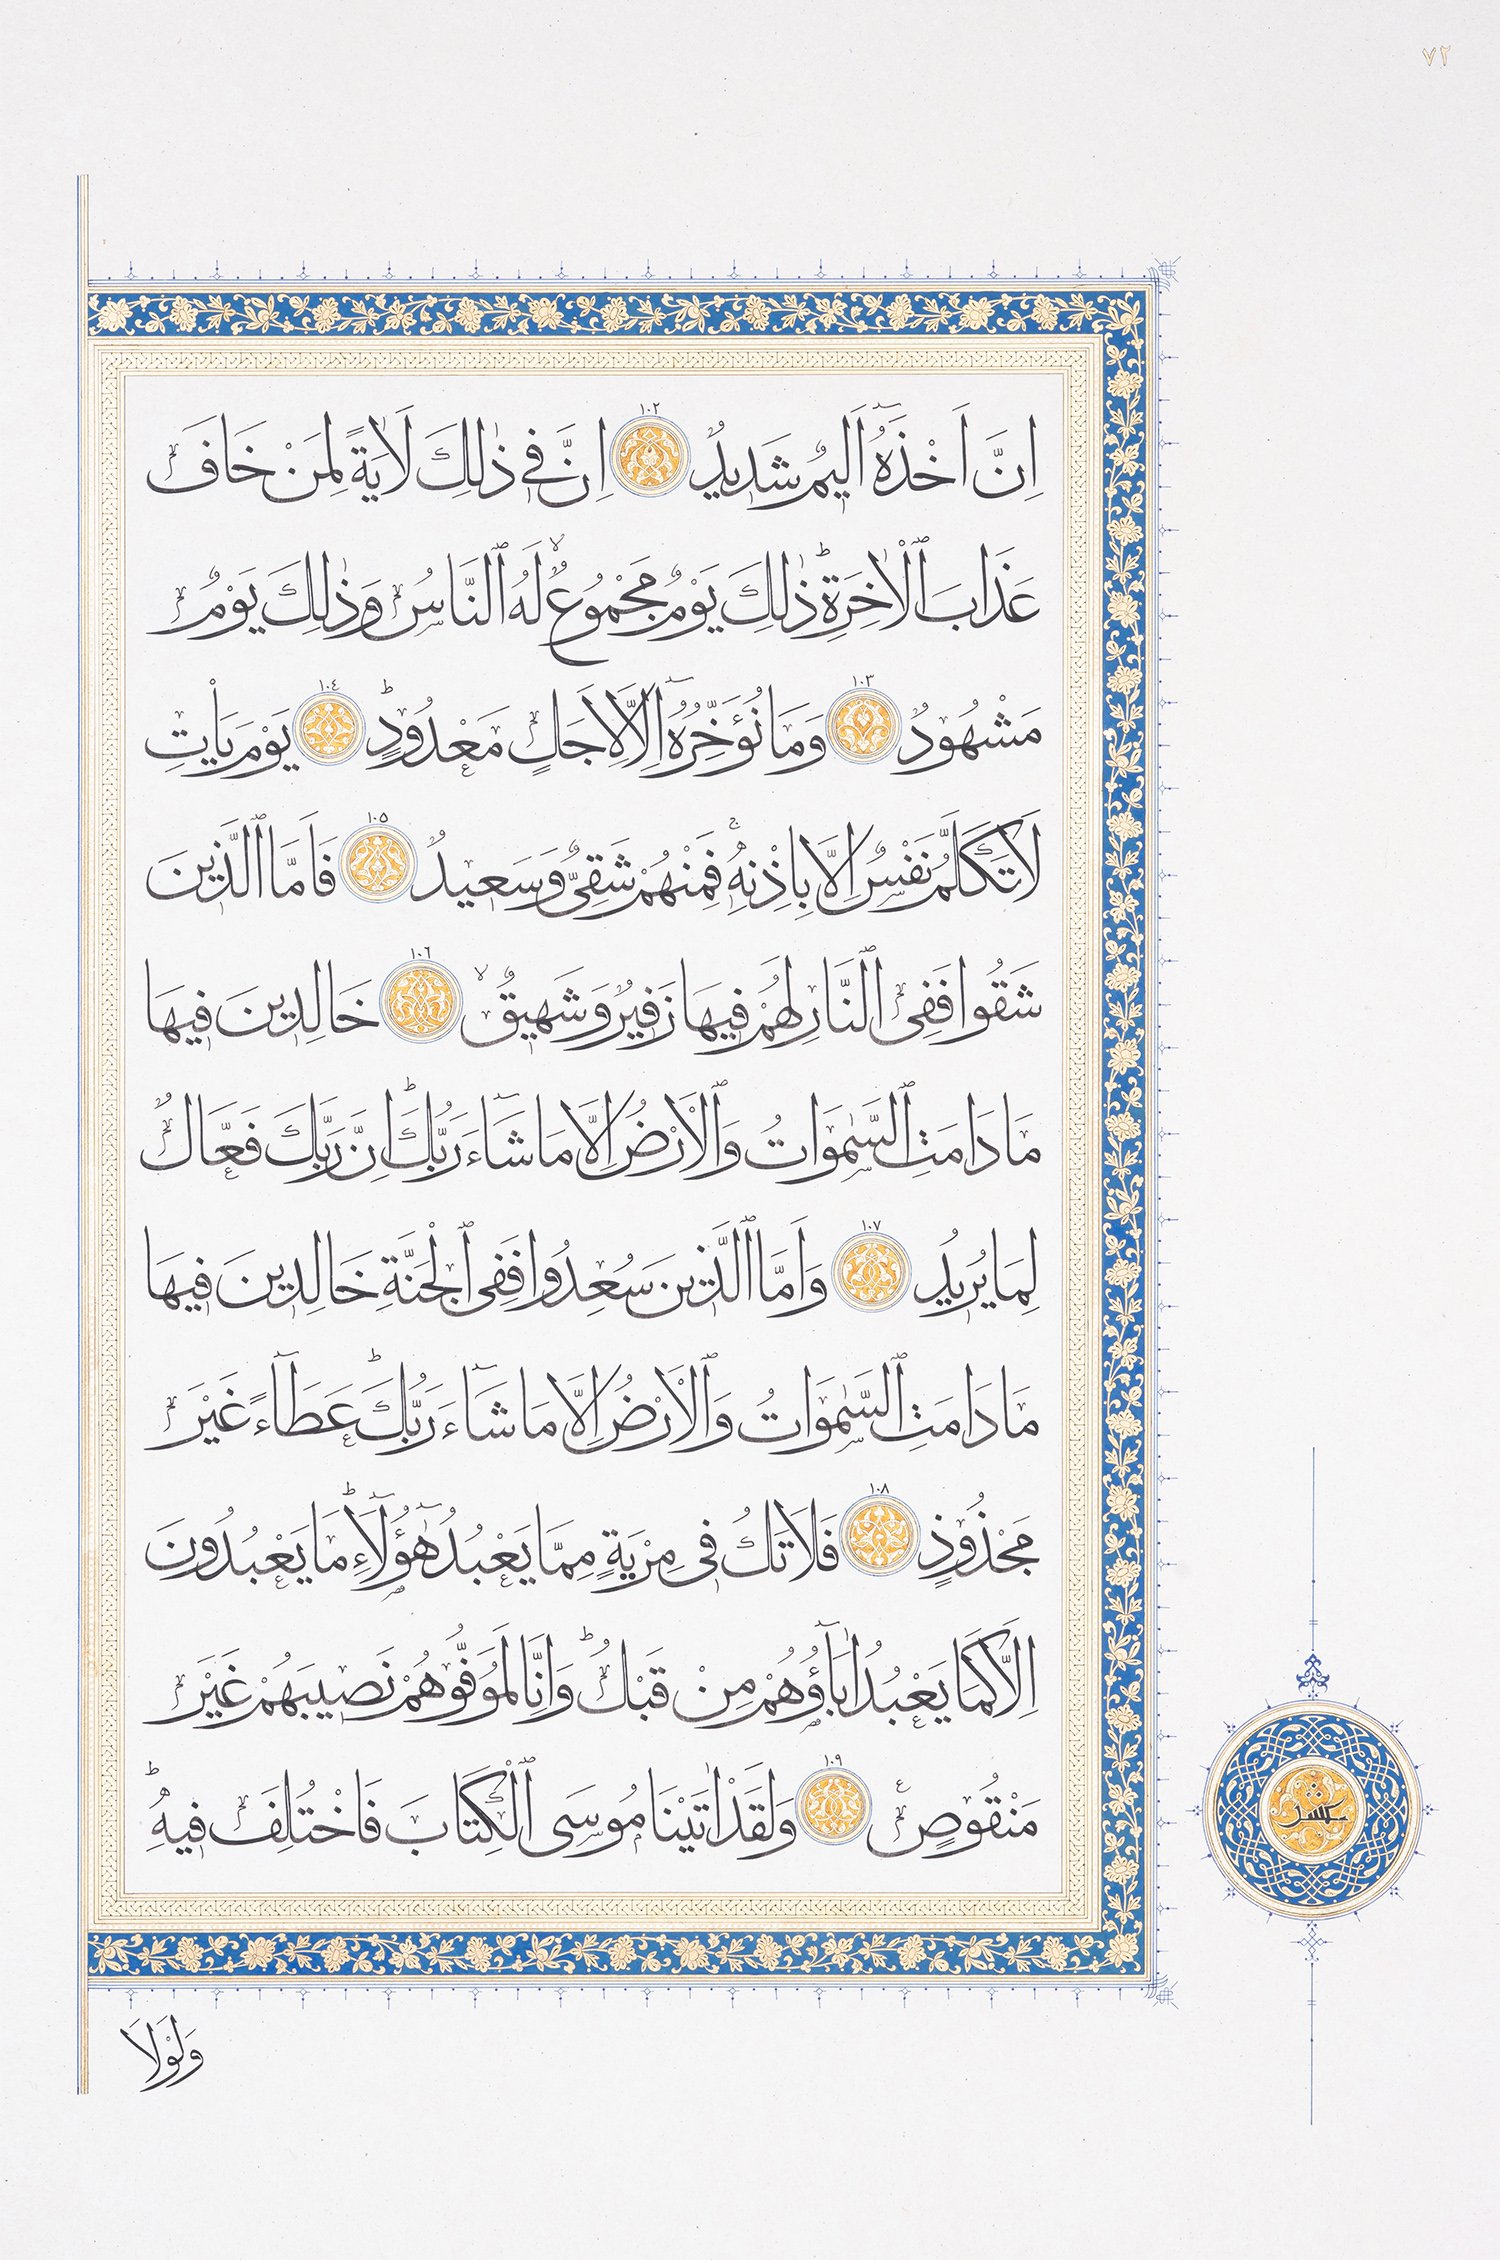 ٧٢
اِنَّ اَخْذَهُٓ اَلِيمٌ شَدِيدٌ ١٠٢ اِنَّ فِي ذٰلِكَ لَاٰيَةً لِمَنْ خَافَ
عَذَابَ ٱلْاٰخِرَةِ ؕ ذٰلِكَ يَوْمٌ مَجْمُوعٌ ۙ لَهُ ٱلنَّاسُ وَذٰلِكَ يَوْمٌ
مَشْهُودٌ ١٠٣ وَمَا نُؤَخِّرُهُٓ اِلَّا لِاَجَلٍ مَعْدُودٍ ؕ ١٠٤ يَوْمَ يَأْتِ
لَا تَكَلَّمُ نَفْسٌ اِلَّا بِاِذْنِهِ ۚ فَمِنْهُمْ شَقِيٌّ وَسَعِيدٌ ١٠٥ فَاَمَّا ٱلَّذِينَ
شَقُوا فَفِى ٱلنَّارِ لَهُمْ فِيهَا زَفِيرٌ وَشَهِيقٌ ۙ ١٠٦ خَالِدِينَ فِيهَا
مَا دَامَتِ ٱلسَّمٰوَاتُ وَٱلْاَرْضُ اِلَّا مَا شَٓاءَ رَبُّكَ ؕ اِنَّ رَبَّكَ فَعَّالٌ
لِمَا يُرِيدُ ١٠٧ وَاَمَّا ٱلَّذِينَ سُعِدُوا فَفِى ٱلْجَنَّةِ خَالِدِينَ فِيهَا
مَا دَامَتِ ٱلسَّمٰوَاتُ وَٱلْاَرْضُ اِلَّا مَا شَٓاءَ رَبُّكَ ؕ عَطَٓاءً غَيْرَ
مَجْذُوذٍ ١٠٨ فَلَا تَكُ فِى مِرْيَةٍ مِمَّا يَعْبُدُ هٰٓؤُلَٓاءِ ؕ مَا يَعْبُدُونَ
اِلَّا كَمَا يَعْبُدُ اٰبَٓاؤُهُمْ مِنْ قَبْلُ ؕ وَاِنَّا لَمُوَفُّوهُمْ نَصِيبَهُمْ غَيْرَ
مَنْقُوصٍ ۧ ١٠٩ وَلَقَدْ اٰتَيْنَا مُوسَى ٱلْكِتَابَ فَاخْتُلِفَ فِيهِ ؕ
وَلَوْلَا